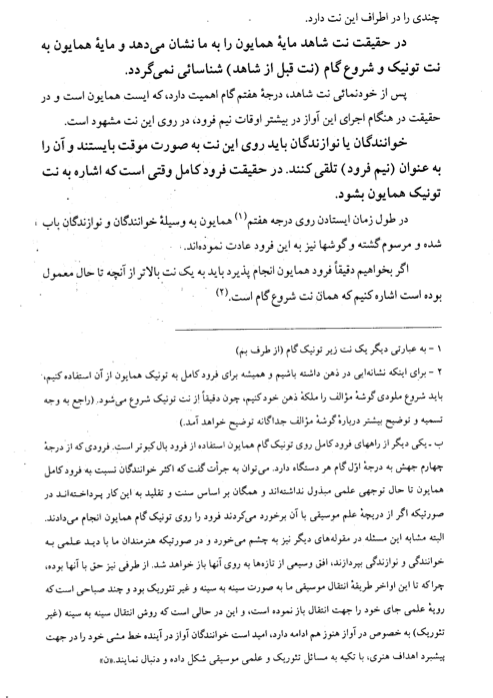 چندی را در اطراف این نت دارد.
در حقیقت نت شاهد مایهٔ همایون را به ما نشان می‌دهد و مایهٔ همایون به
نت تونیک و شروع گام (نت قبل از شاهد) شناسائی نمی‌گردد.
پس از خودنمائی نت شاهد، درجهٔ هفتم گام اهمیت دارد، که ایست همایون است و در
حقیقت در هنگام اجرای این آواز در بیشتر اوقات نیم فرود، در روی این نت مشهود است.
خوانندگان یا نوازندگان باید روی این نت به صورت موقت بایستند و آن را
به عنوان (نیم فرود) تلقی کنند. در حقیقت فرود کامل وقتی است که اشاره به نت
تونیک همایون بشود.
در طول زمان ایستادن روی درجه هفتم(۱) همایون به وسیلهٔ خوانندگان و نوازندگان باب
شده و مرسوم گشته و گوشها نیز به این فرود عادت نموده‌اند.
اگر بخواهیم دقیقاً فرود همایون انجام پذیرد باید به یک نت بالاتر از آنچه تا حال معمول
بوده است اشاره کنیم که همان نت شروع گام است.(۲)
۱ - به عبارتی دیگر یک نت زیر تونیک گام (از طرف بم)
۲ - برای اینکه نشانه‌ایی در ذهن داشته باشیم و همیشه برای فرود کامل به تونیک همایون از آن استفاده کنیم،
باید شروع ملودی گوشهٔ مؤالف را ملکهٔ ذهن خود کنیم، چون دقیقاً از نت تونیک شروع می‌شود. (راجع به وجه
تسمیه و توضیح بیشتر دربارهٔ گوشهٔ مؤالف جداگانه توضیح خواهد آمد.)
ب - یکی دیگر از راههای فرود کامل روی تونیک گام همایون استفاده از فرود بال کبوتر است. فرودی که از درجهٔ
چهارم جهش به درجهٔ اوّل گام هر دستگاه دارد. می‌توان به جرأت گفت که اکثر خوانندگان نسبت به فرود کامل
همایون تا حال توجهی علمی مبذول نداشته‌اند و همگان بر اساس سنت و تقلید به این کار پرداخته‌اند در
صورتیکه اگر از دریچهٔ علم موسیقی با آن برخورد می‌کردند فرود را روی تونیک گام همایون انجام می‌دادند.
البته مشابه این مسئله در مقوله‌های دیگر نیز به چشم می‌خورد و در صورتیکه هنرمندان ما با دید علمی به
خوانندگی و نوازندگی بپردازند، افق وسیعی از تازه‌ها به روی آنها باز خواهد شد. از طرفی نیز حق با آنها بوده،
چرا که تا این اواخر طریقهٔ انتقال موسیقی ما به صورت سینه به سینه و غیر تئوریک بود و چند صباحی است که
رویهٔ علمی جای خود را جهت انتقال باز نموده است، و این در حالی است که روش انتقال سینه به سینه (غیر
تئوریک) به خصوص در آواز هنوز هم ادامه دارد، امید است خوانندگان آواز در آینده خط مشی خود را در جهت
پیشبرد اهداف هنری، با تکیه به مسائل تئوریک و علمی موسیقی شکل داده و دنبال نمایند.«ن»